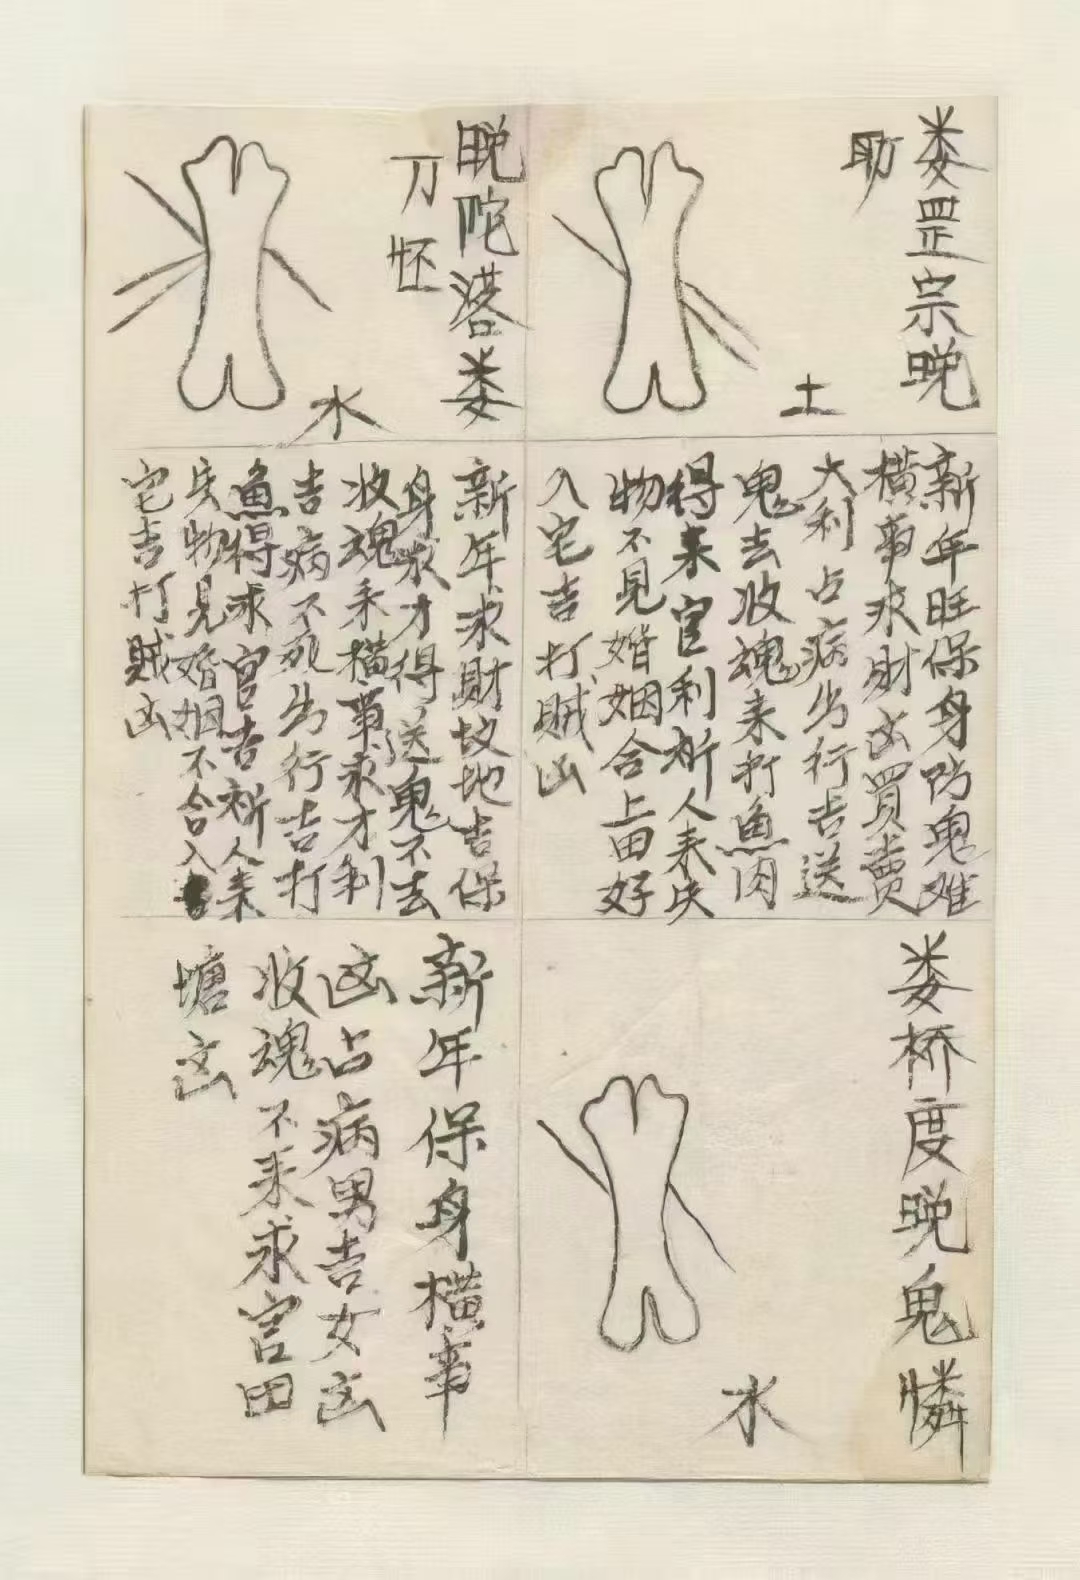 娄罡宗晚
助
土
新年旺保身防鬼难
横事求財凶買賣
大利占病出行吉送
鬼去收魂来打魚肉
得来官利祈人来失
物不見婚姻合上田好
入宅吉打賊凶
晚陀撘娄
丅刀怌
水
新年求財坟地吉保
身求才得送鬼不去
收魂来横事求才利
吉病不死出行吉打
魚得求官吉祈人来
失物見婚姻不合入
宅吉打賊凶
娄桥度晚鬼憐
水
新年保身横事
凶占病男吉女凶
收魂不来求官田
塘凶